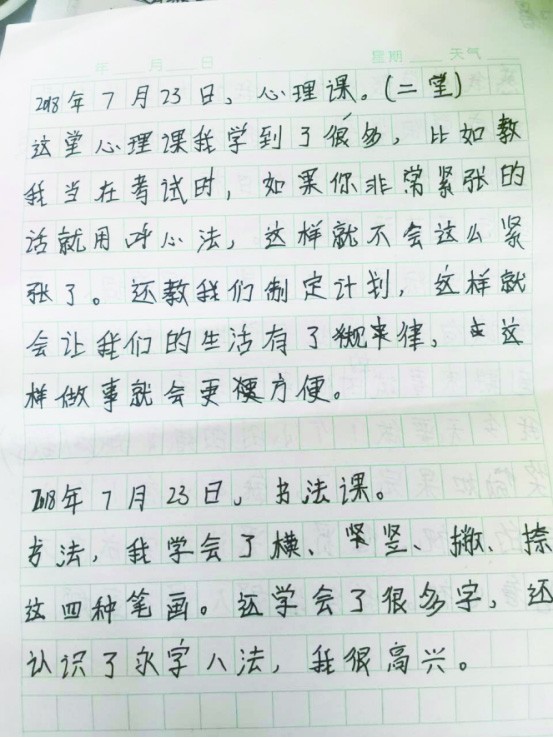 年 月 日 星期 天气
2018年7月23日、心理课。(二堂)
这堂心理课我学到了很多,比如教
我当在考试时,如果你非常紧张的
话就用呼心法,这样就不会这么紧
张了。还教我们制定计划,这样就
会让我们的生活有了规律,这
样做事就会更方便。
2018年7月23日、书法课。
书法,我学会了横、竖、撇、捺
这四种笔画。还学会了很多字,还
认识了永字八法,我很高兴。